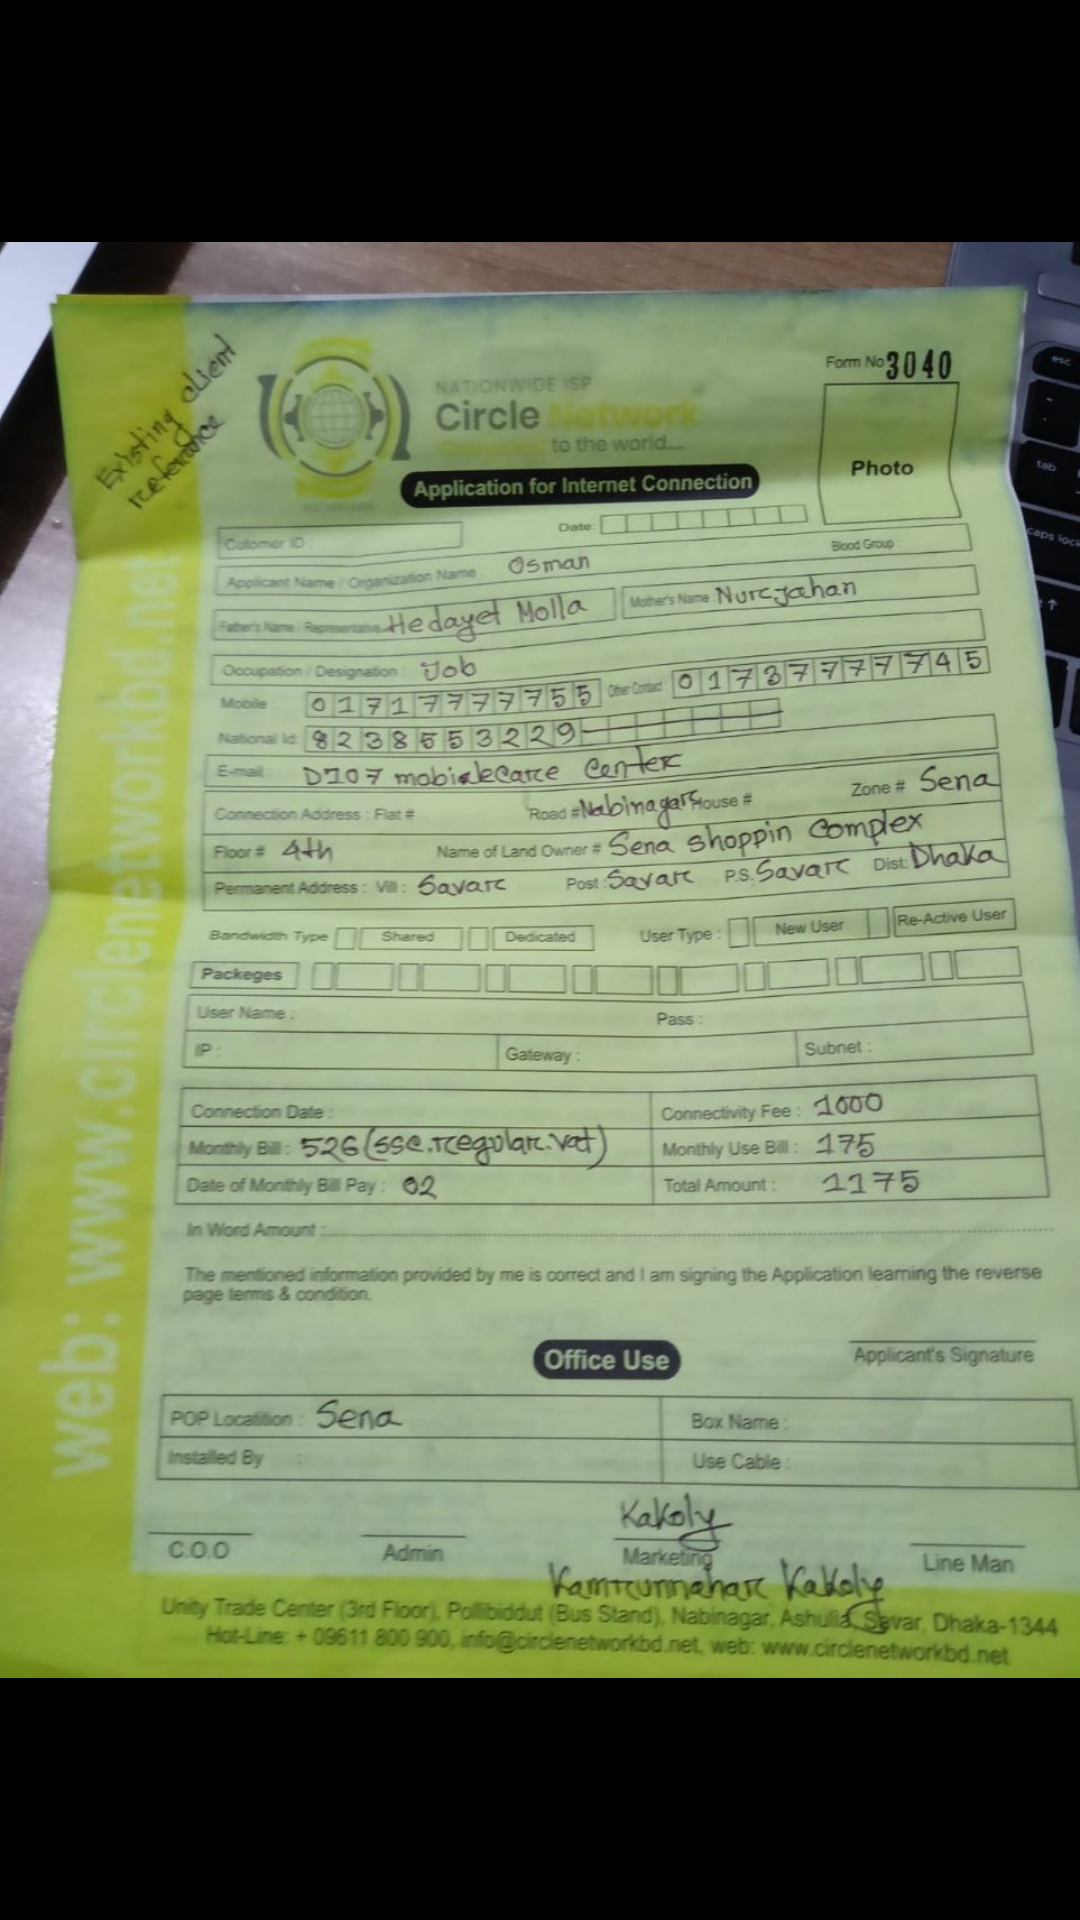 Existing client
reference
NATIONWIDE ISP
Circle Network
to the world....
Form No 3040
Photo
Application for Internet Connection
Cutomer ID :
Date:
Blood Group :
Applicant Name / Organization Name : Osman
Father's Name / Representative: Hedayet Molla Mother's Name Nurjahan
Occupation / Designation : Job
Mobile : 01717777755 Other Contact 01737777745
National Id: 8238553229
E-mail : D107 mobilecare Center
Connection Address : Flat # Road # Nabinagar House # Zone # Sena
Floor # 4th Name of Land Owner # Sena shoppin Complex
Permanent Address : Vill : Savar Post : Savar P.S. Savar Dist: Dhaka
Bandwidth Type Shared Dedicated User Type : New User Re-Active User
Packeges
User Name : Pass :
IP : Gateway : Subnet :
Connection Date : Connectivity Fee : 1000
Monthly Bill : 526 (sse.regular.vat) Monthly Use Bill : 175
Date of Monthly Bill Pay : 02 Total Amount : 1175
In Word Amount :
The mentioned information provided by me is correct and I am signing the Application learning the reverse
page terms & condition.
Applicant's Signature
Office Use
POP Locatition : Sena Box Name :
Installed By : Use Cable :
Kakoly
C.O.O Admin Marketing Line Man
Kamrunnahar Kakoly
Unity Trade Center (3rd Floor), Pollibiddut (Bus Stand), Nabinagar, Ashulia, Savar, Dhaka-1344
Hot-Line: + 09611 800 900, info@circlenetworkbd.net, web: www.circlenetworkbd.net
web: www.circlenetworkbd.net
esc
tab
caps lock